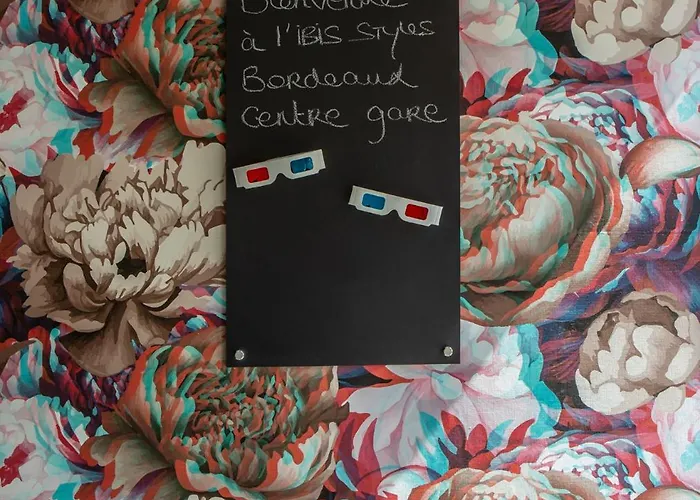 Bienvenue
à l'iBiS Styles
Bordeaux
Centre gare